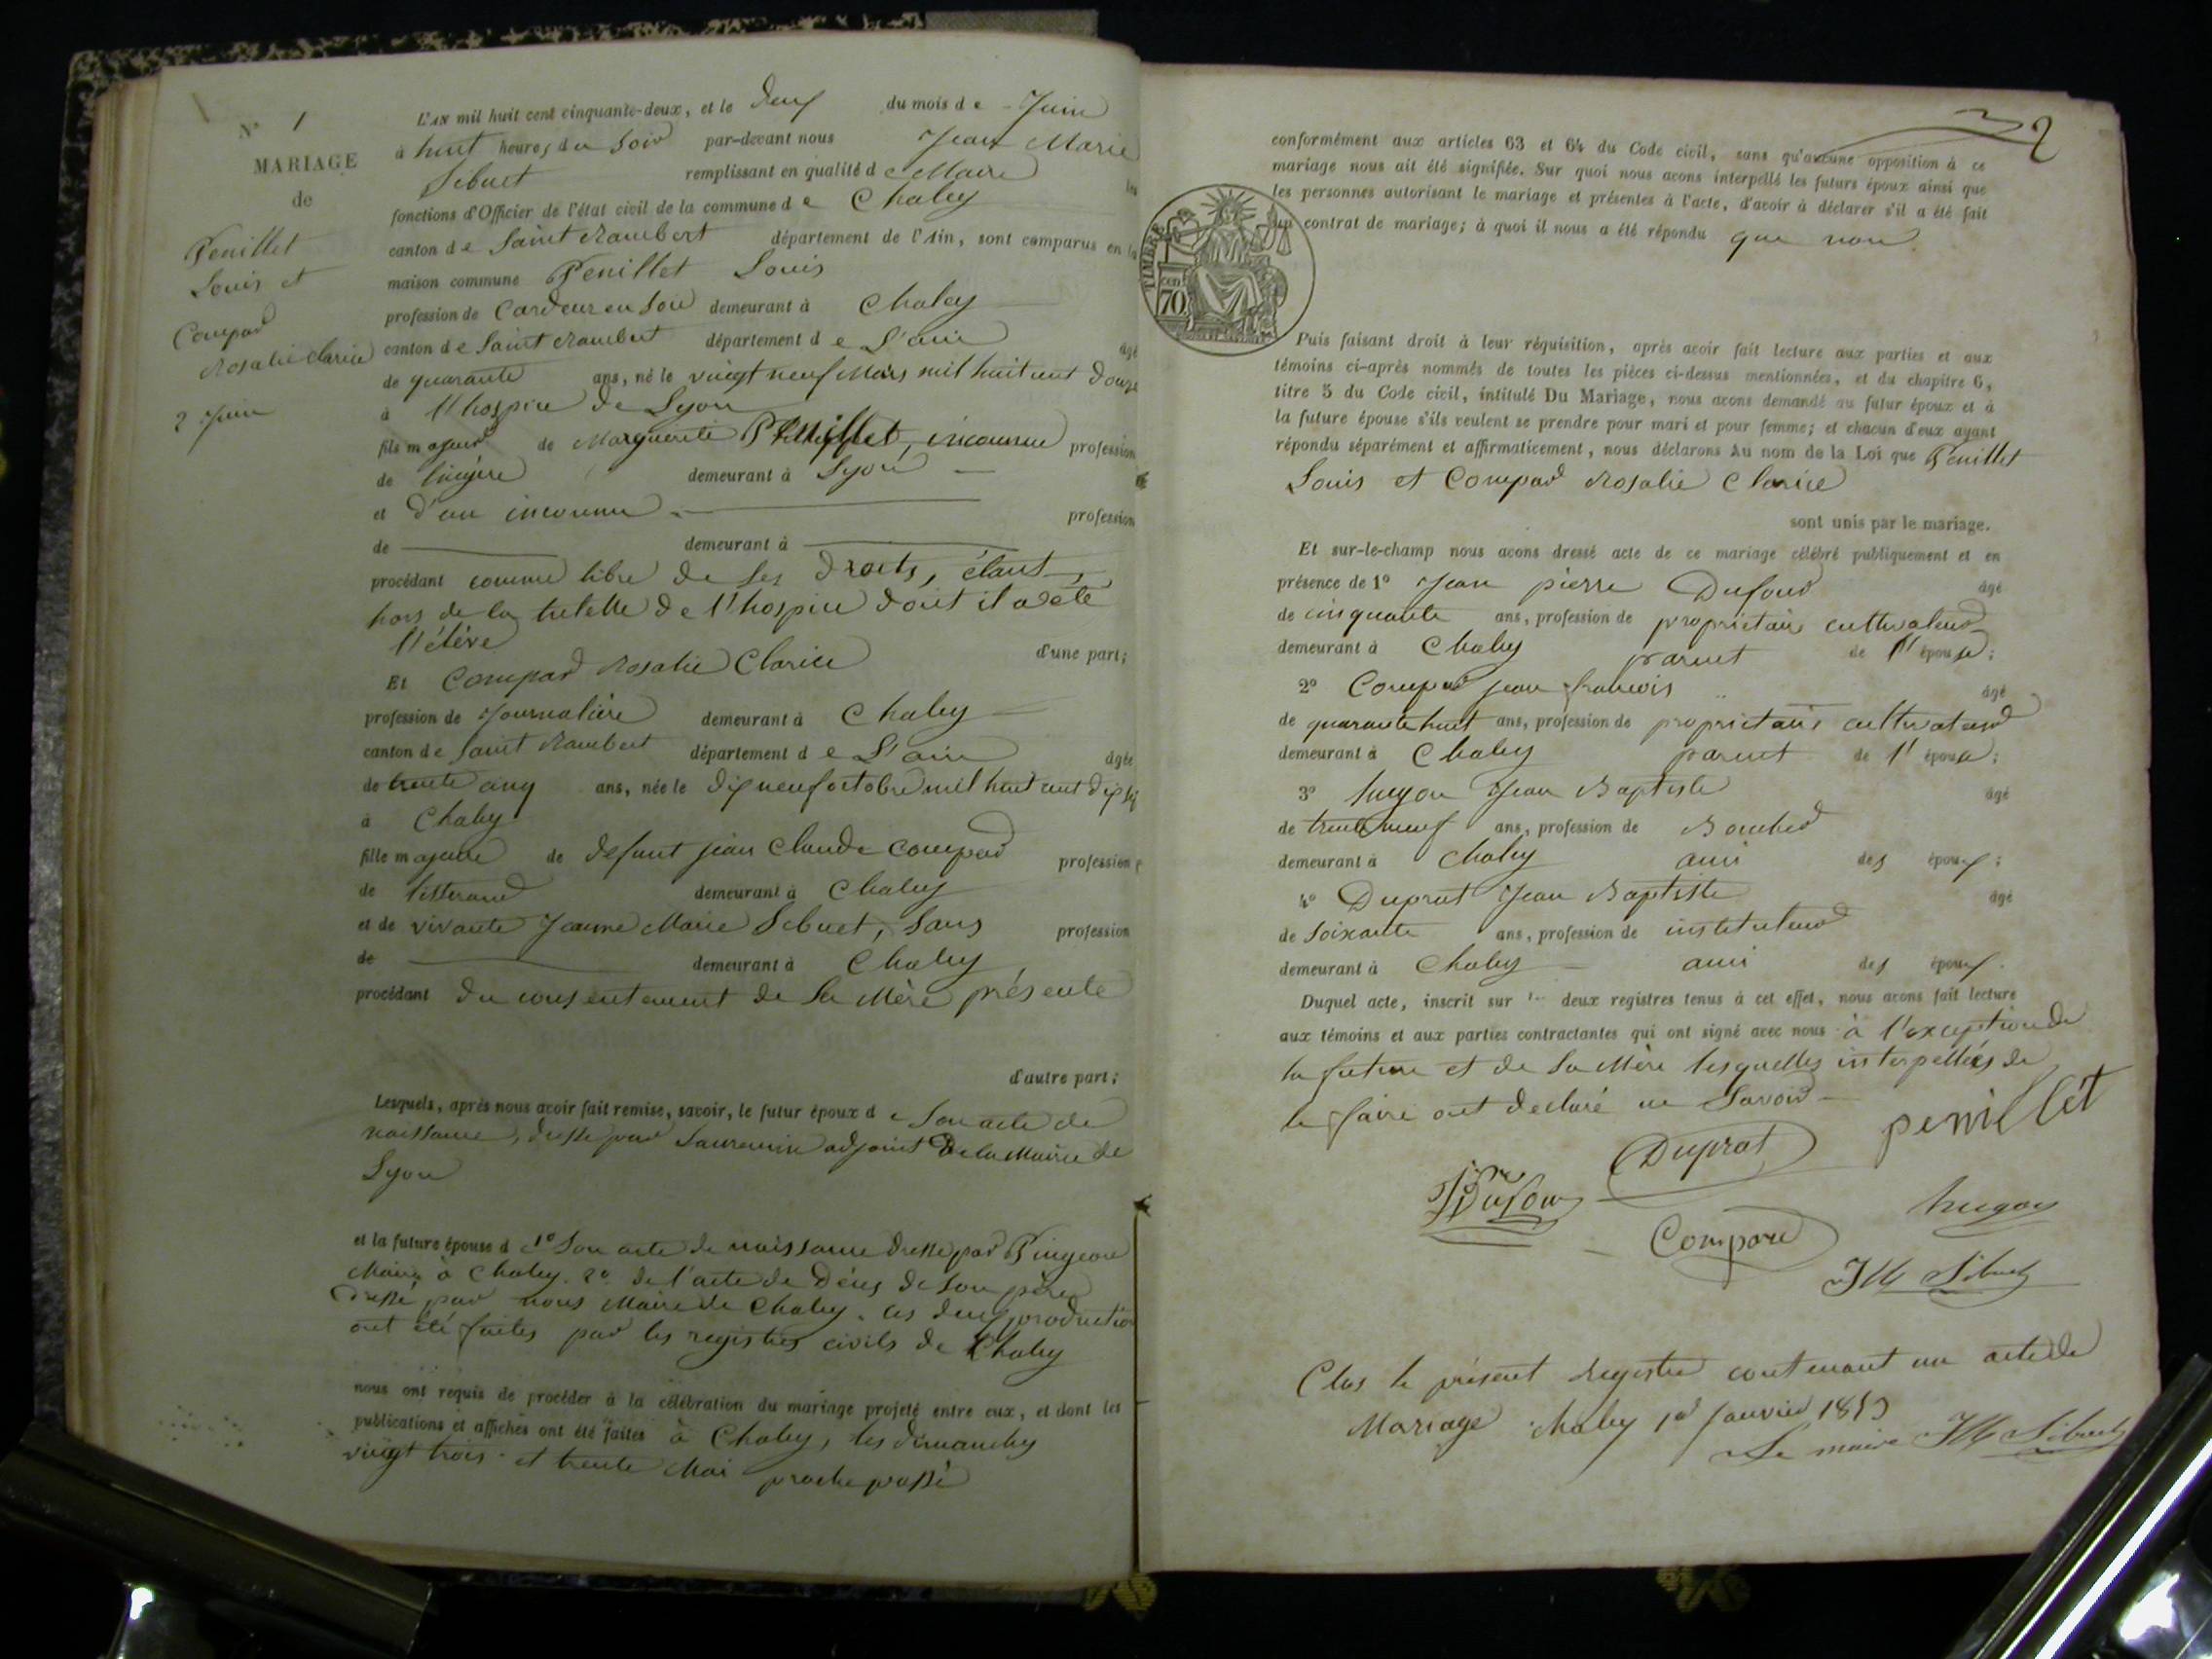 N° 1
MARIAGE
de
Penillet
Louis et
Compard
Rosalie Clarice
2 Juin
L'AN mil huit cent cinquante-deux, et le deux du mois de Juin
à huit heures du Soir par-devant nous Jean Marie
Sibuet remplissant en qualité de Maire les
fonctions d'Officier de l'état civil de la commune de Chaley
canton de Saint Rambert département de l'Ain, sont comparus en la
maison commune Penillet Louis
profession de Cardeur en Soie demeurant à Chaley
canton de Saint Rambert département de L'ain âgé
de quarante ans, né le vingt neuf Mars mil huit cent douze
à l'hospice de Lyon
fils majeur de Marguerite Penillet, inconnue profession
de lingère demeurant à Lyon
et d'un inconnu profession
de demeurant à
procédant comme libre de ses droits, étant
hors de la tutelle de l'hospice dont il a été
l'élève
d'une part;
Et Compard Rosalie Clarice
profession de Journalière demeurant à Chaley
canton de Saint Rambert département de L'ain âgée
de trente cinq ans, née le dix neuf octobre mil huit cent dix
à Chaley
fille majeure de defunt jean Claude Compard profession
de tisserand demeurant à Chaley
et de vivante Jeanne Marie Sibuet, sans profession
de demeurant à Chaley
procédant du consentement de sa Mère présente
d'autre part;
Lesquels, après nous avoir fait remise, savoir, le futur époux de Son acte de
naissance, dressé par adjoint de la Mairie de
Lyon
et la future épouse d 1° Son acte de naissance dressé par Pingeon
Maire à Chaley. 2° de l'acte de Décès de son père
dressé par nous Maire de Chaley. ces deux production
ont été faites par les registres civils de Chaley
nous ont requis de procéder à la célébration du mariage projeté entre eux, et dont les
publications et affiches ont été faites à Chaley, les dimanches
vingt trois et trente Mai proche passé
2
conformément aux articles 63 et 64 du Code civil, sans qu'aucune opposition à ce
mariage nous ait été signifiée. Sur quoi nous avons interpellé les futurs époux ainsi que
les personnes autorisant le mariage et présentes à l'acte, d'avoir à déclarer s'il a été fait
un contrat de mariage; à quoi il nous a été répondu que non
TIMBRE
70
Puis faisant droit à leur réquisition, après avoir fait lecture aux parties et aux
témoins ci-après nommés de toutes les pièces ci-dessus mentionnées, et du chapitre 6,
titre 5 du Code civil, intitulé Du Mariage, nous avons demandé au futur époux et à
la future épouse s'ils veulent se prendre pour mari et pour femme; et chacun d'eux ayant
répondu séparément et affirmativement, nous déclarons Au nom de la Loi que Penillet
Louis et Compard Rosalie Clarice
sont unis par le mariage.
Et sur-le-champ nous avons dressé acte de ce mariage célébré publiquement et en
présence de 1° Jean pierre Dufour âgé
de cinquante ans, profession de propriétaire cultivateur
demeurant à Chaley parent de l'épouse;
2° Compard jean francois âgé
de quarante huit ans, profession de propriétaire cultivateur
demeurant à Chaley parent de l'épouse;
3° hugon Jean Baptiste âgé
de trente neuf ans, profession de Boucher
demeurant à Chaley ami des époux;
4° Duprat Jean Baptiste âgé
de soixante ans, profession de instituteur
demeurant à Chaley ami des époux.
Duquel acte, inscrit sur les deux registres tenus à cet effet, nous avons fait lecture
aux témoins et aux parties contractantes qui ont signé avec nous à l'exception de
la future et de sa Mère lesquelles interpellées de
le faire ont déclaré ne Savoir
penillet
Duprat
Dufour
hugon
Compard
JM Sibuet
Clos le présent Registre contenant un acte de
Mariage Chaley 1er Janvier 1853
Le maire JM Sibuet